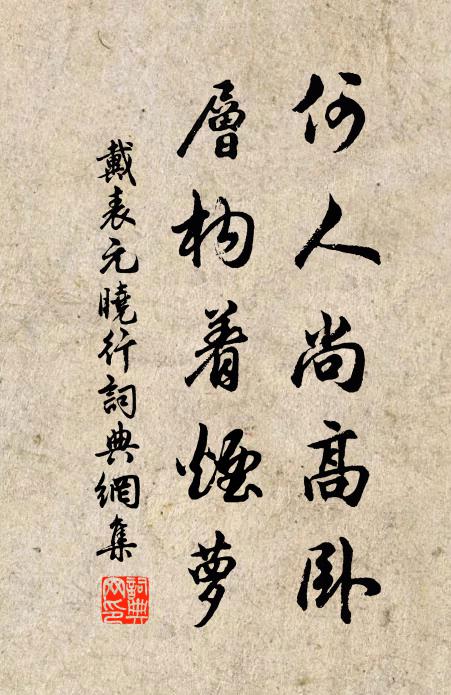 何人尚高臥
層构着煙夢
戴表元曉行詞典網集
詞典网印